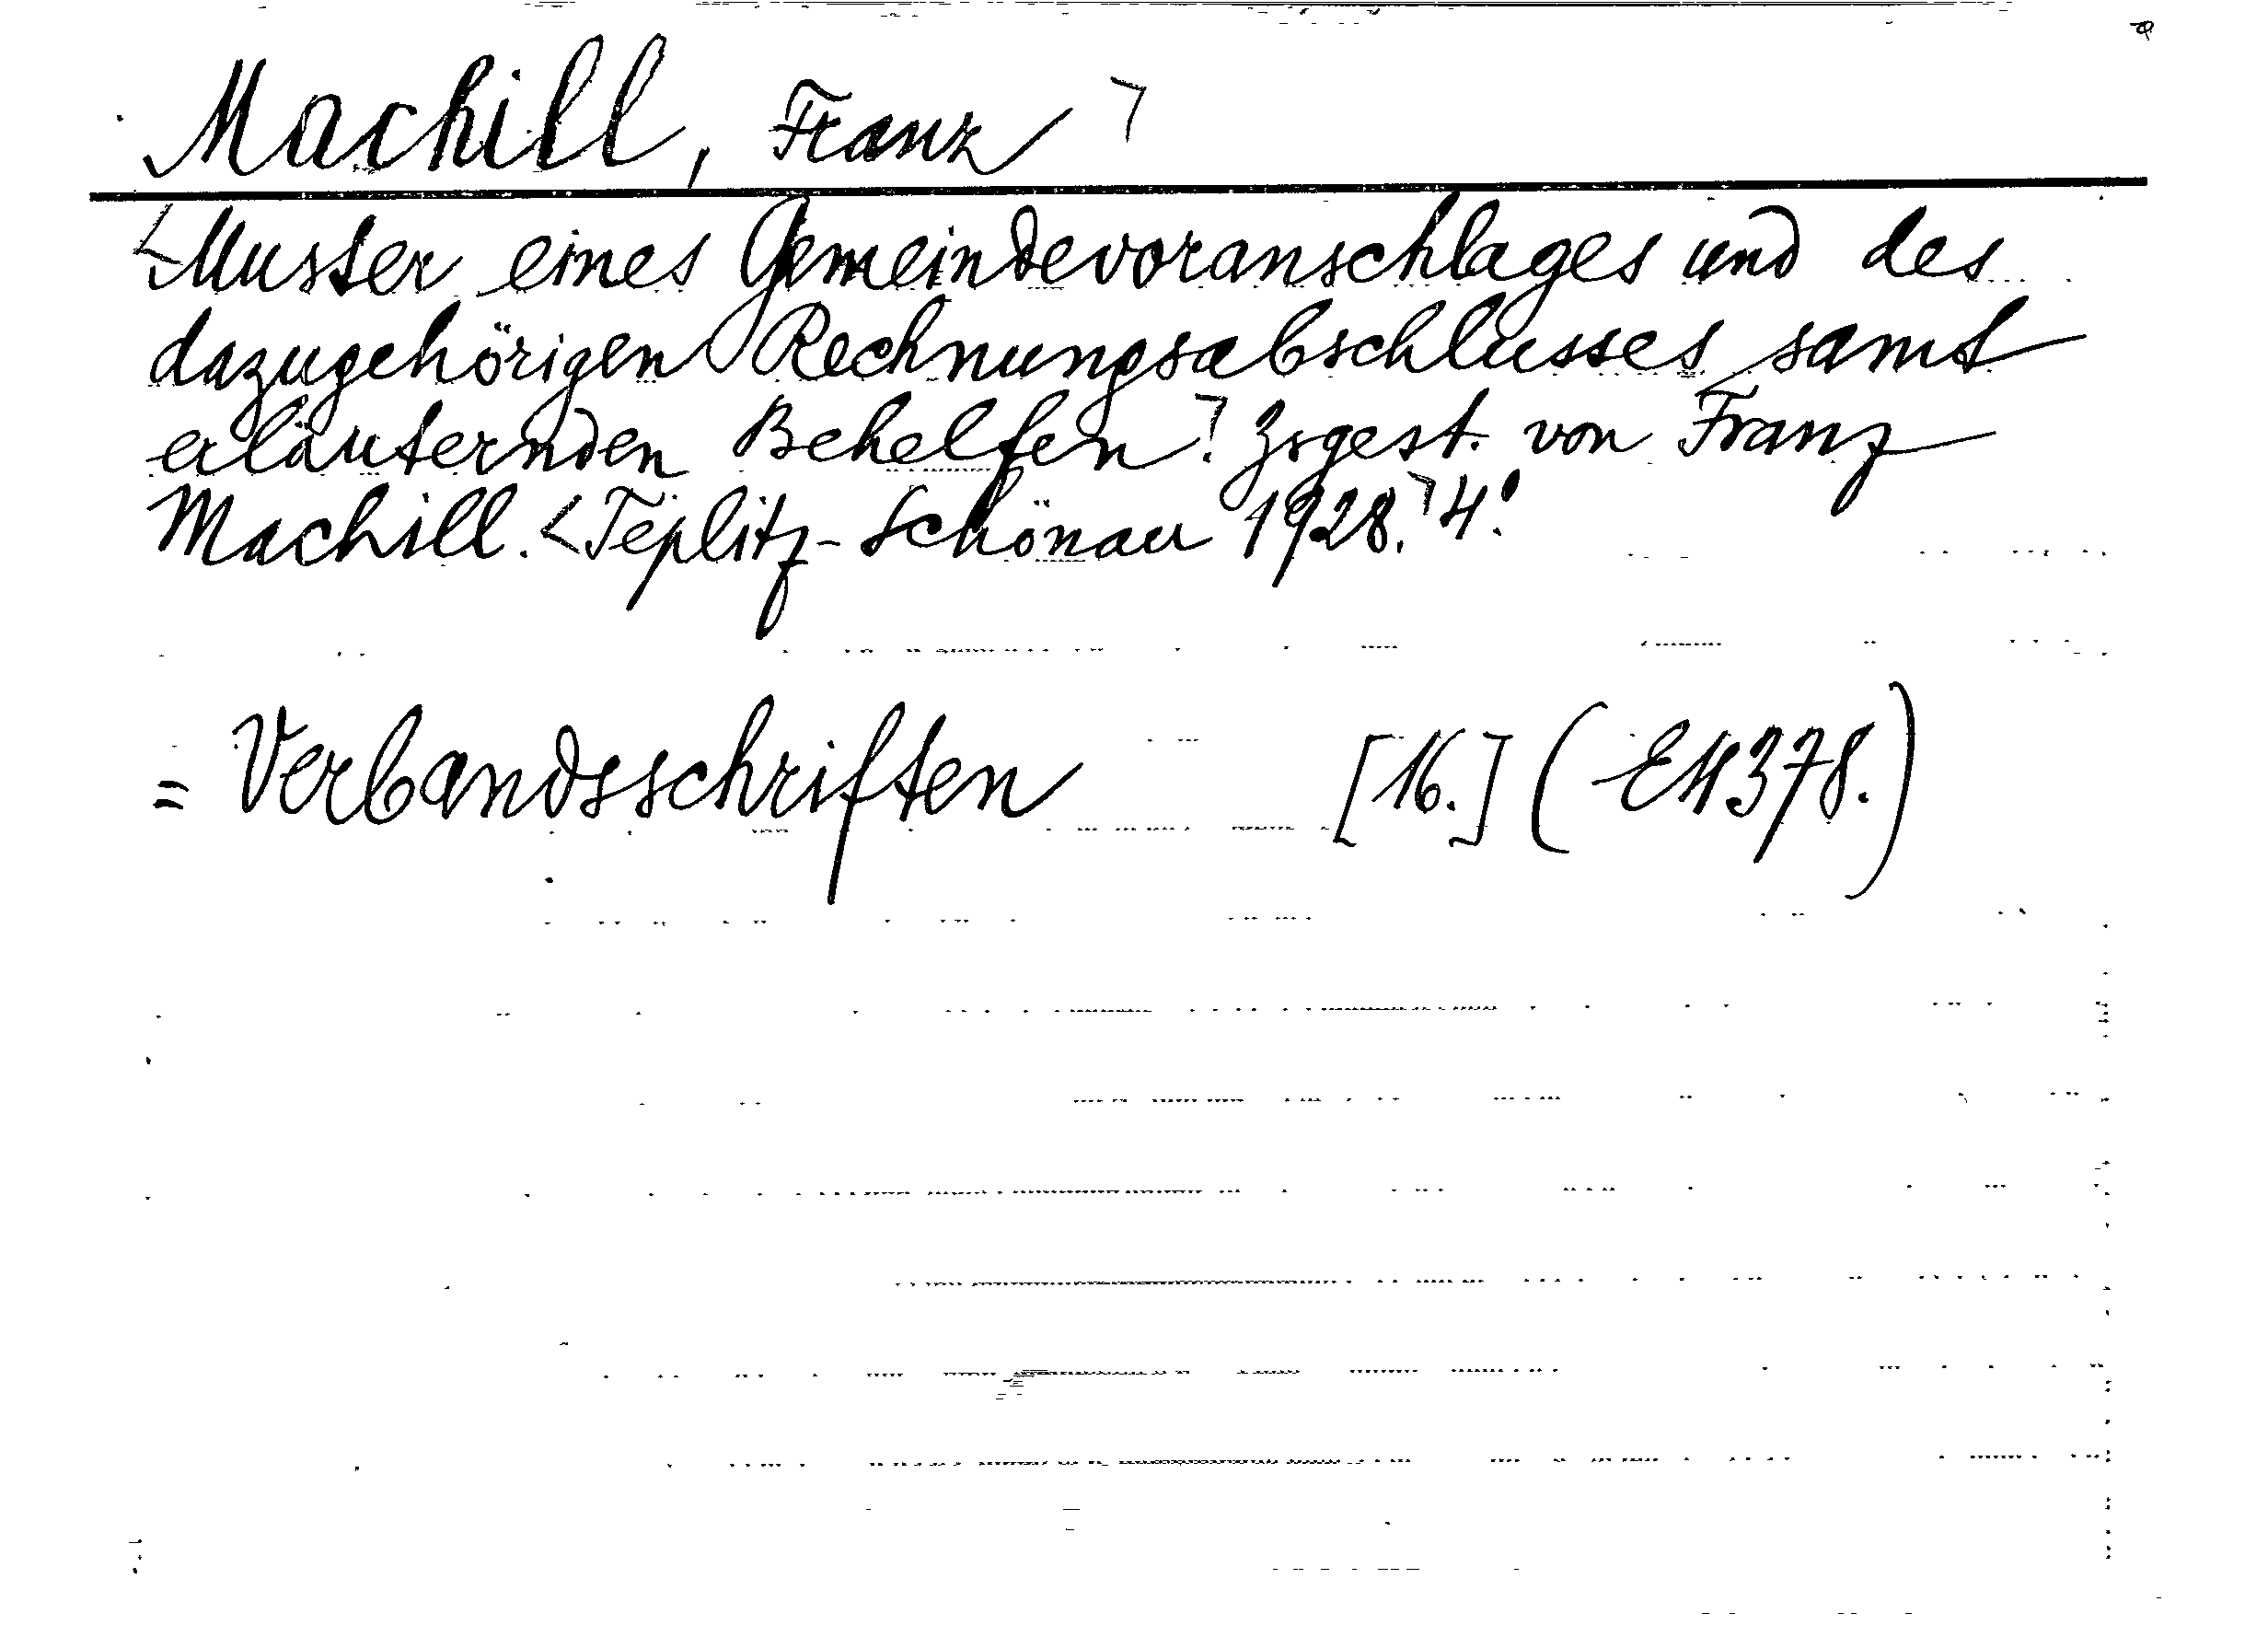 Machill, Franz
Muster eines Gemeindevoranschlages und des
dazugehörigen Rechnungsabschlusses samt
erläuternden Behelfen. Zsgest. von Franz
Machill. <Teplitz-Schönau 1928.> 4°.
= Verbandsschriften [16.] (E 11378.)